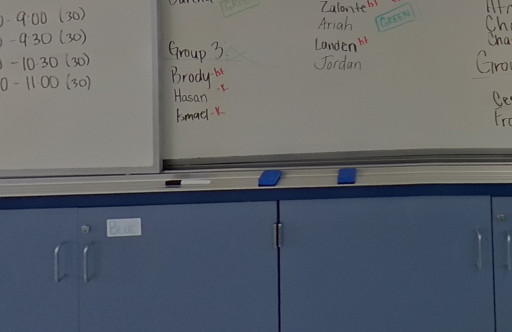 0-9:00 (30)
-9:30 (30)
-10:30 (30)
0-11:00 (30)
GREEN
Group 3
Brody-ht
Hasan -K
Ismael-K
Zalonte ht
Ariah
GREEN
Landen ht
Jordan
Cha
Grou
Ce
Fra
BLUE